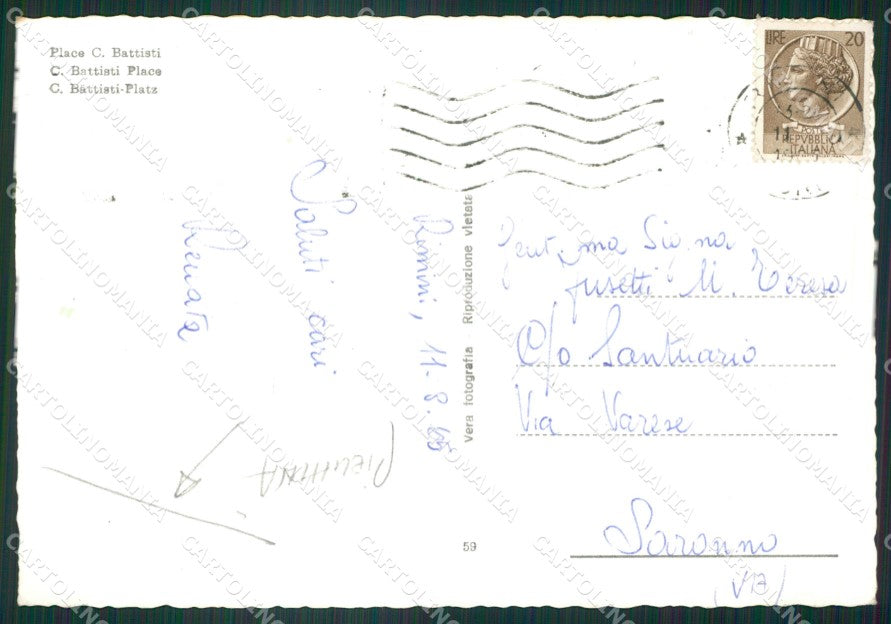 Place C. Battisti
C. Battisti Place
C. Battisti-Platz
LIRE 20
POSTE
REPVBBLICA
ITALIANA
Rimini, 11-8-65
Saluti cari
Renata
Vera fotografia Riproduzione vietata
Gent.ma Sig.na
Fusetti M. Teresa
C/o Santuario
Via Varese
Saronno
(VA)
59
CARTOLINOMANIA